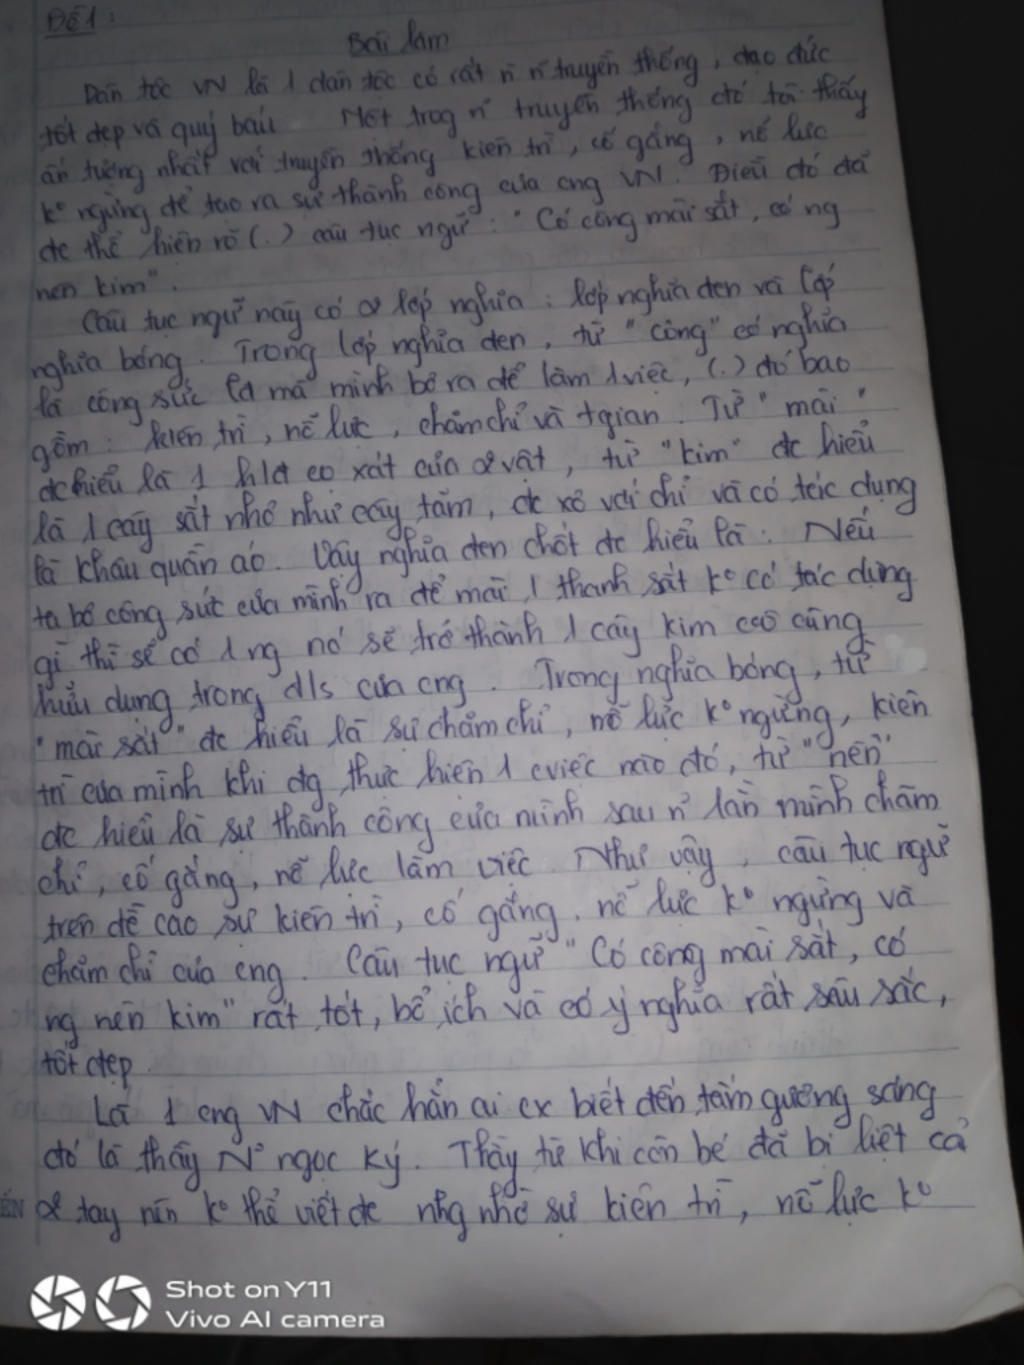 Đề 1:
Bài làm
Dân tộc VN là 1 dân tộc có rất n n truyền thống, đạo đức
tốt đẹp và quý báu. Một trog n truyền thống đó tôi thấy
ấn tượng nhất với truyền thống kiên trì, cố gắng, nỗ lực
ko ngừng để tạo ra sự thành công của cng VN. Điều đó đã
đc thể hiện rõ (.) câu tục ngữ: "Có công mài sắt, có ng
nên kim".
Câu tục ngữ này có 2 lớp nghĩa: lớp nghĩa đen và lớp
nghĩa bóng. Trong lớp nghĩa đen, từ "công" có nghĩa
là công sức mà mình bỏ ra để làm 1 việc, (.) đó bao
gồm: kiên trì, nỗ lực, chăm chỉ và tgian. Từ "mài"
đc hiểu là 1 cọ xát của 2 vật, từ "kim" đc hiểu
là 1 cây sắt nhỏ như cây tăm, đc xỏ với chỉ và có tác dụng
là khâu quần áo. Vậy nghĩa đen chốt đc hiểu là: Nếu
ta bỏ công sức của mình ra để mài 1 thanh sắt ko có tác dụng
gì thì sẽ có 1 ng nó sẽ trở thành 1 cây kim vô cùng
hữu dụng trong đ/s của cng. Trong nghĩa bóng, từ
"mài sắt" đc hiểu là sự chăm chỉ, nỗ lực ko ngừng, kiên
trì của mình khi đg thực hiện 1 cviệc nào đó, từ "nên"
đc hiểu là sự thành công của mình sau n lần mình chăm
chỉ, cố gắng, nỗ lực làm việc. Như vậy, câu tục ngữ
trên đề cao sự kiên trì, cố gắng, nỗ lực ko ngừng và
chăm chỉ của cng. Câu tục ngữ "Có công mài sắt, có
ng nên kim" rất tốt, bổ ích và có ý nghĩa rất sâu sắc,
tốt đẹp.
Là 1 cng VN chắc hẳn ai cx biết đến tấm gương sáng
đó là thầy N ngọc Ký. Thầy từ khi còn bé đã bị liệt cả
2 tay nên ko thể viết đc nhg nhờ sự kiên trì, nỗ lực ko
Shot on Y11
Vivo AI camera